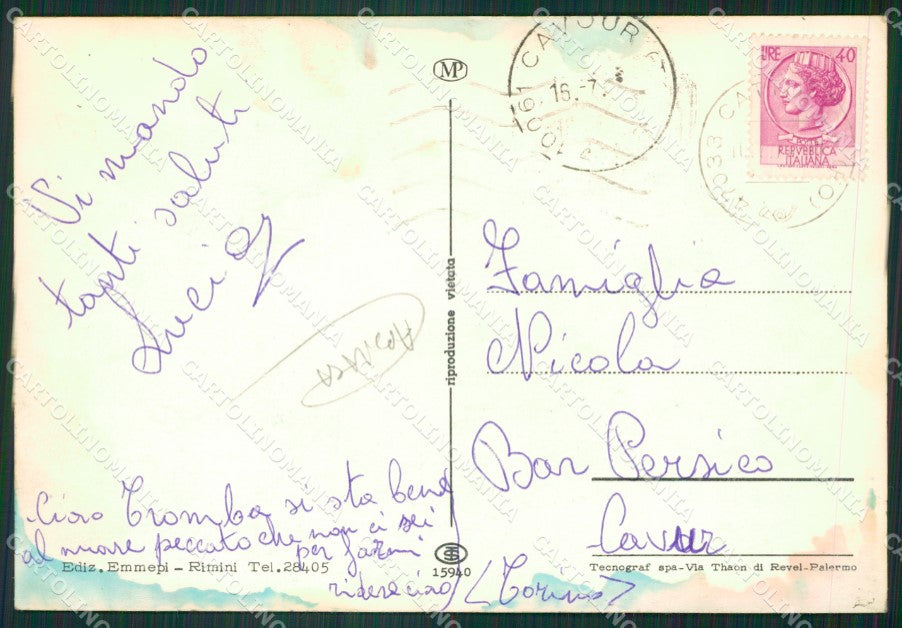 Vi mando
tanti saluti
Lucia
Ciao Tromba si sta bene
al mare peccato che non ci sei
per farmi
ridere ciao
Ediz. Emmepi - Rimini Tel. 28405
MP
riproduzione vietata
15940
CAVOUR
10061
16.-7.
LIRE 40
REPVBBLICA
ITALIANA
Famiglia
Nicola
Bar Persico
Cavur
(Torino)
Tecnograf spa-Via Thaon di Revel-Palermo
CARTOLINOMANIA